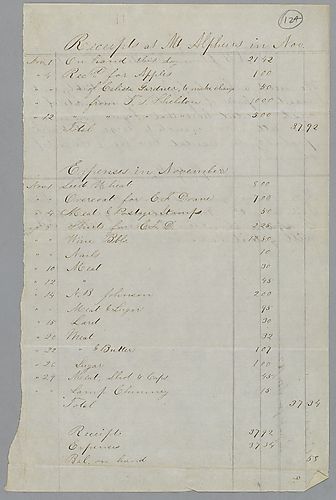 124
Receipts at Mt Alpheus in Nov.
Nov 1 On hand this day 21.42
" 4 Rec'd for Apples 1.00
" " of Celista Gardner, to make change .50
" " from T. S. 10.00
" 12 " " " 5.00
Total 37.92
Expenses in November
Nov 1 Seed Wheat 5.00
" " Overcoat for Eck Doane 1.00
" 4 Meal & Postage Stamps 50
" 5 Shirts for Eck D. 2.25
" " Wine Bbls. 12.50
" " Nails 10
" 10 Meat 30
" 12 " 45
" 14 N. B. Johnson 2.00
" " Meat & Sugar 95
" 18 Lard 30
" 20 Meat 32
" 22 " & Butter 1.07
" 26 Sugar 1.00
" 29 Meat, Shot & Caps 45
" " Lamp Chimney 15
Total 37.34
Receipts 37.92
Expenses 37.34
Bal. on hand .58